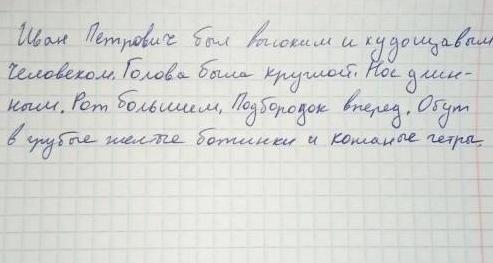 Иван Петрович был высоким и худощавым
человеком. Голова была круглой. Нос длин-
ным. Рот большим. Подбородок вперед. Обут
в грубые желтые ботинки и кожаные гетры.